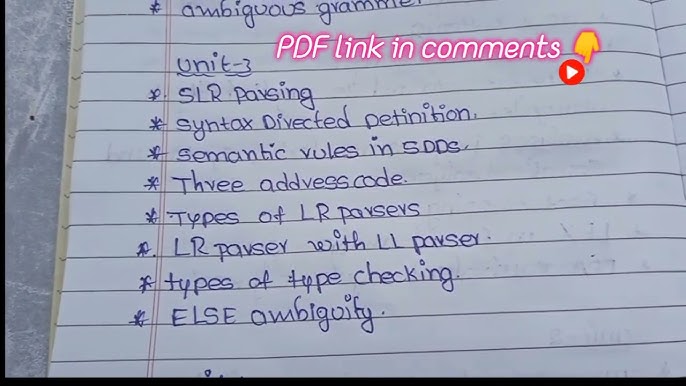 * ambiguous gramme
PDF link in comments 👇
Unit-3
* SLR Parsing
* Syntax Directed Definition.
* Semantic rules in SDDs.
* Three address code.
* Types of LR parsers
* LR parser with LL parser.
* types of type checking.
* ELSE ambiguity.